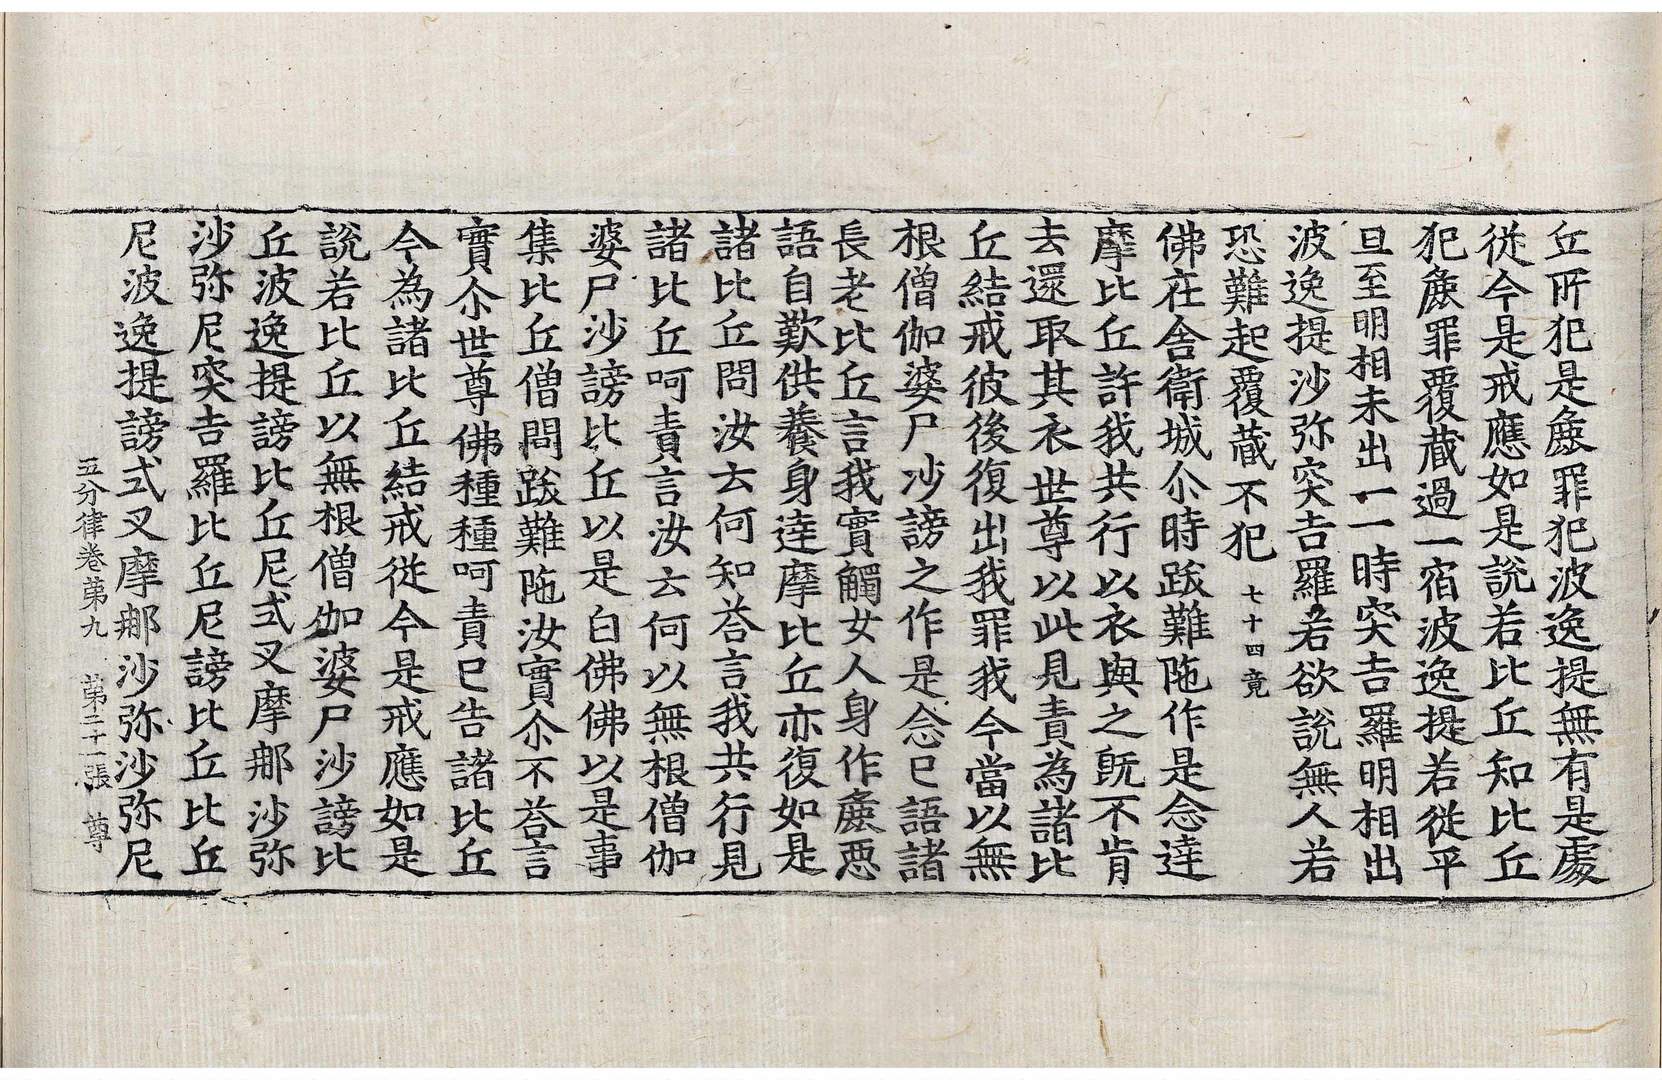 丘所犯是麁罪犯波逸提無有是處
從今是戒應如是說若比丘知比丘
犯麁罪覆藏過一宿波逸提若從平
旦至明相未出一一時突吉羅明相出
波逸提沙弥突吉羅若欲說無人若
恐難起覆藏不犯 七十四竟
佛在舍衛城尒時跋難陁作是念達
摩比丘許我共行以衣與之旣不肯
去還取其衣世尊以此見責為諸比
丘結戒彼後復出我罪我今當以無
根僧伽婆尸沙謗之作是念已語諸
長老比丘言我實觸女人身作麁惡
語自歎供養身達摩比丘亦復如是
諸比丘問汝云何知荅言我共行見
諸比丘呵責言汝云何以無根僧伽
婆尸沙謗比丘以是白佛佛以是事
集比丘僧問跋難陁汝實尒不荅言
實尒世尊佛種種呵責已告諸比丘
今為諸比丘結戒從今是戒應如是
說若比丘以無根僧伽婆尸沙謗比
丘波逸提謗比丘尼式叉摩郍沙弥
沙弥尼突吉羅比丘尼謗比丘比丘
尼波逸提謗式叉摩郍沙弥沙弥尼
五分律卷苐九 苐二十一張 尊